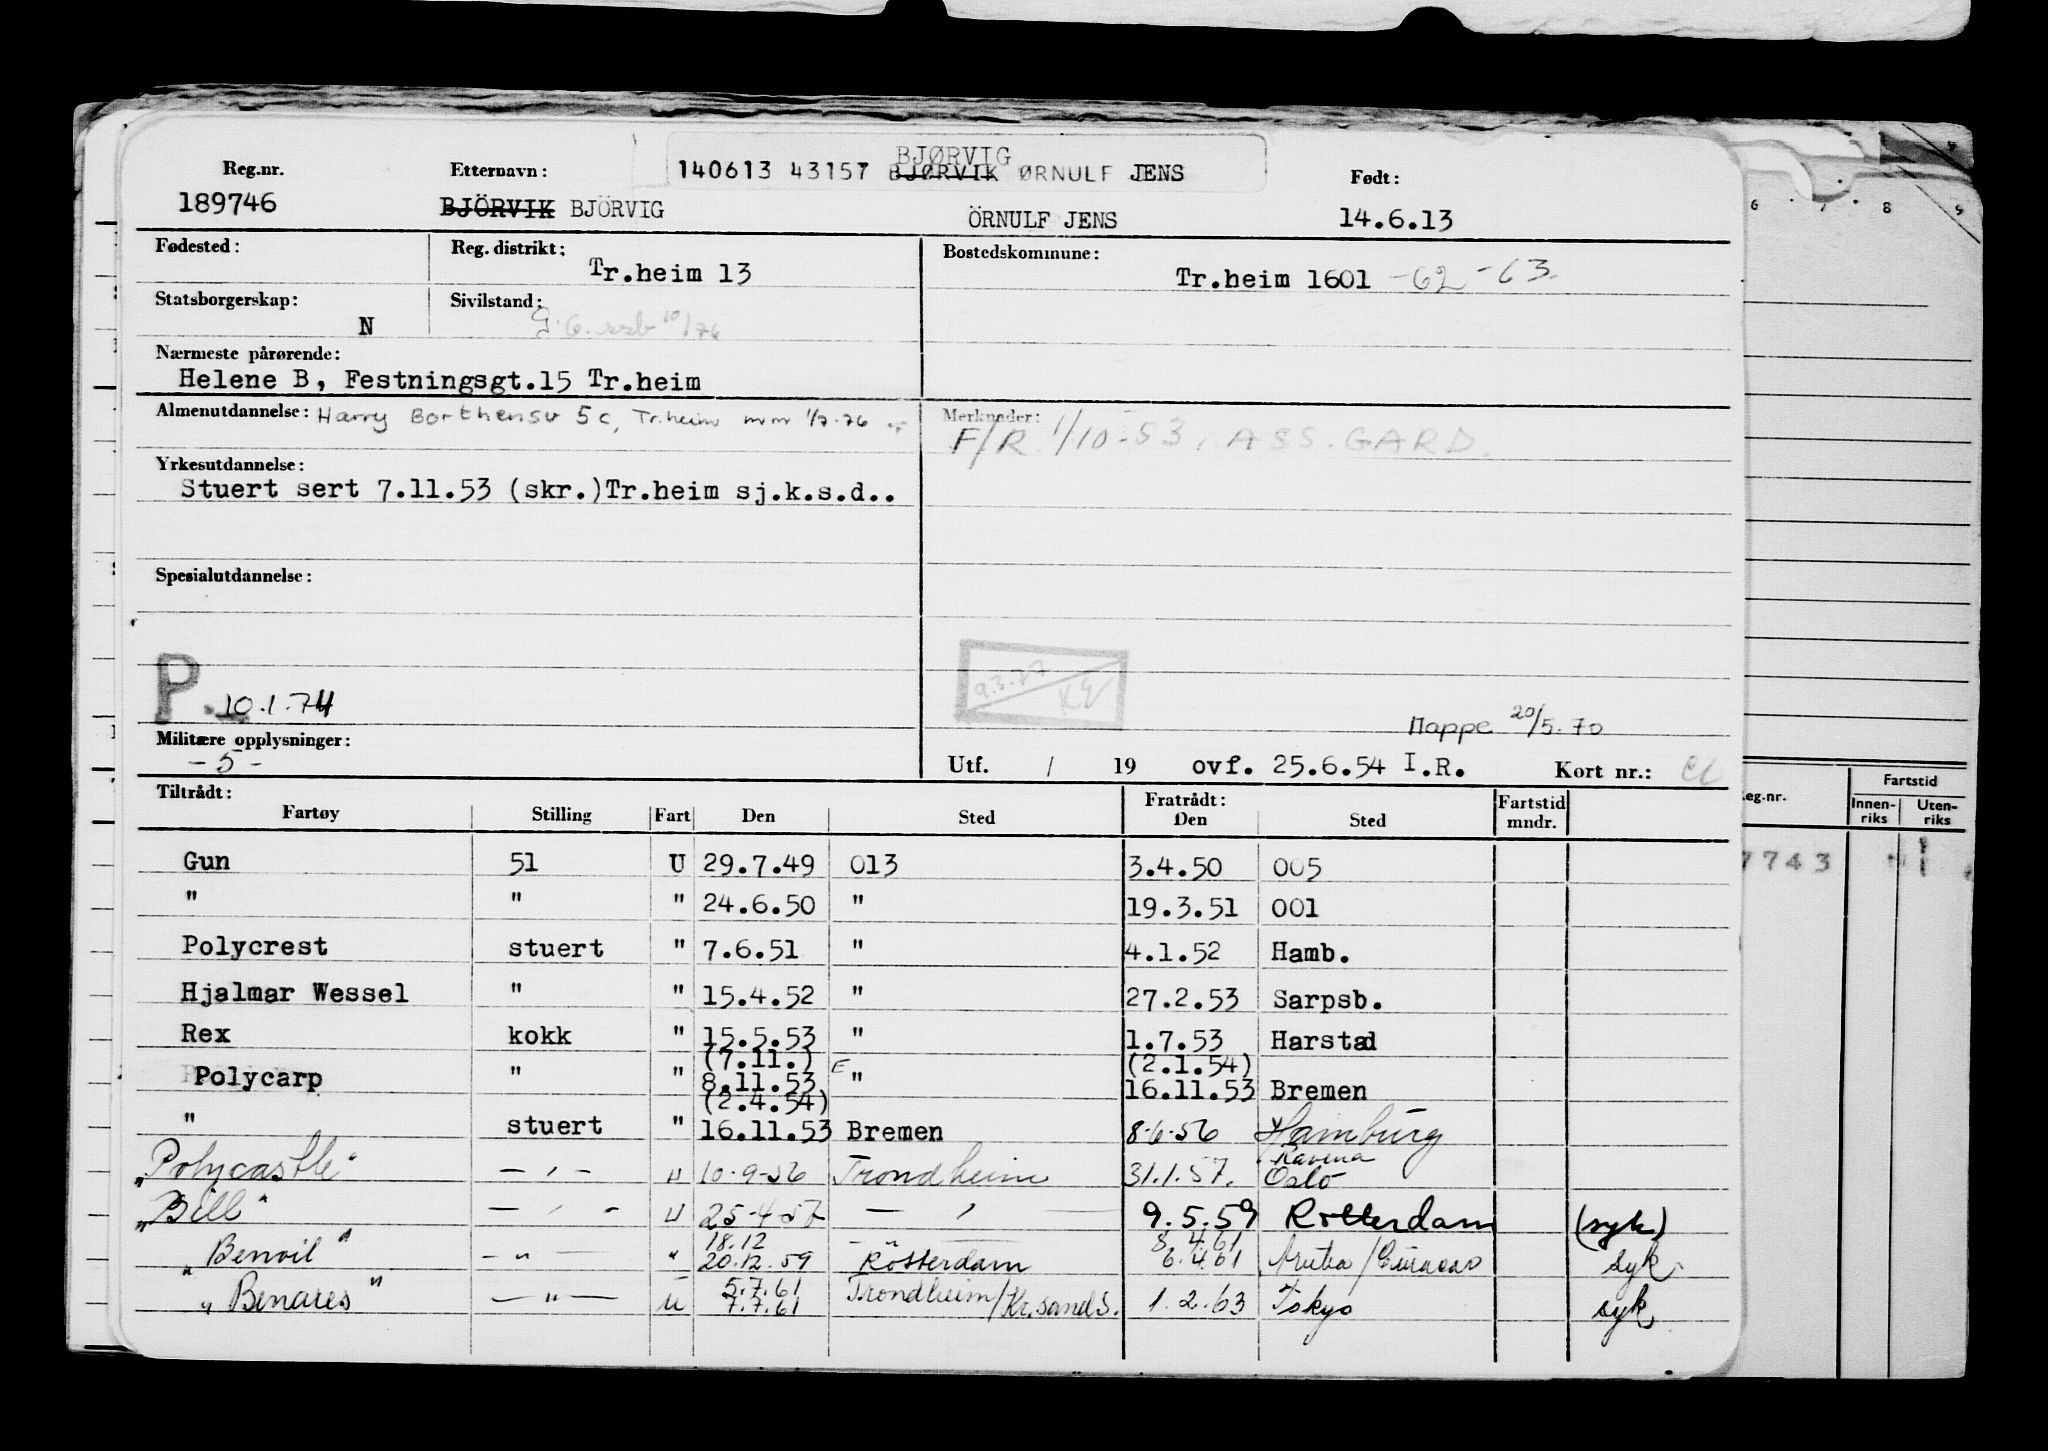 BJØRVIG
140613 43157 BJØRVIK ØRNULF JENS
Reg.nr. Etternavn: Født:
189746 BJÖRVIK BJÖRVIG ÖRNULF JENS 14.6.13
Fødested: Reg. distrikt: Bostedskommune:
Tr.heim 13 Tr.heim 1601 -62 -63.
Statsborgerskap: Sivilstand:
N 10/76
Nærmeste pårørende:
Helene B, Festningsgt.15 Tr.heim
Almenutdannelse: Harry Borthensv 5c, Tr.heim mm 1/7-76 Merknader:
F/R 1/10-53, ASS.GARD.
Yrkesutdannelse:
Stuert sert 7.11.53 (skr.)Tr.heim sj.k.s.d..
Spesialutdannelse:
P. 10.1.74
Mappe 20/5.70
Militære opplysninger:
-5- Utf. / 19 ovf. 25.6.54 I.R. Kort nr.:
Tiltrådt: Fratrådt:
Fartøy Stilling Fart Den Sted Den Sted Fartstid mndr.
Gun 51 U 29.7.49 013 3.4.50 005
" " " 24.6.50 " 19.3.51 001
Polycrest stuert " 7.6.51 " 4.1.52 Hamb.
Hjalmar Wessel " " 15.4.52 " 27.2.53 Sarpsb.
Rex kokk " 15.5.53 " 1.7.53 Harstad
(7.11.) E (2.1.54)
Polycarp " " 8.11.53 " 16.11.53 Bremen
(2.4.54)
" stuert " 16.11.53 Bremen 8-6-56 Hamburg
Ravena
"Polycastle" - , - U 10-9-56 Trondheim 31.1.57. Oslo
"Bill" - , - U 25-4-57 - , - 9.5.59 Rotterdam (syk)
18.12 8.4.61
"Benvil" - " - " 20.12.59 Rotterdam 6.4.61 Aruba/Curacao syk
5.7.61
"Benares" - " - U 7.7.61 Trondheim/Kr.sand S. 1.2.63 Tokyo syk
6 . 7 . 8 9
eg.nr. Fartstid
Innen-riks Uten-riks
7743